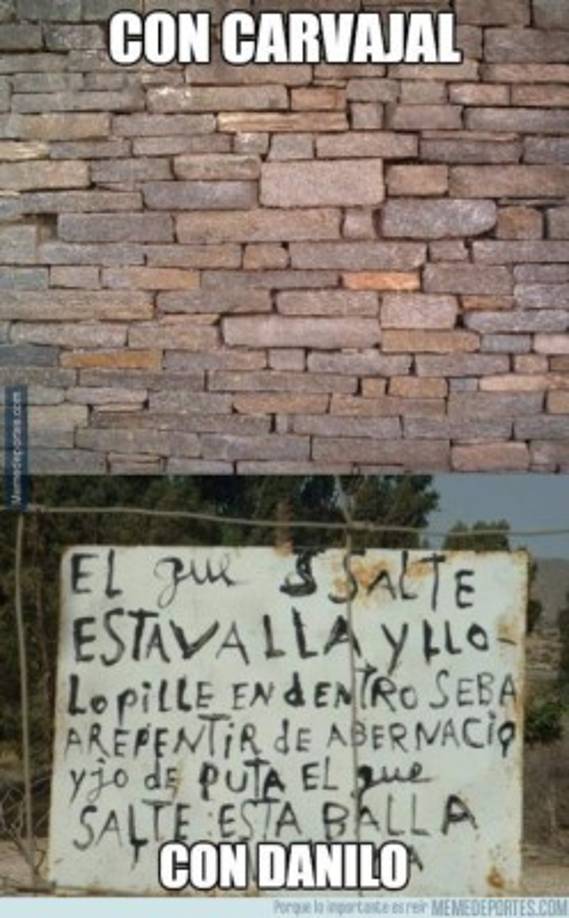 CON CARVAJAL
Memedeportes.com
EL que SSALTE
ESTAVALLA Y LLO-
LopiLLE EN dENTRO SEBA
AREPENTiR dE ABERNACiO
yjo dE PUTA EL que
SALTE ESTA BALLA
CON DANILO
Porque lo importante es reir MEMEDEPORTES.COM